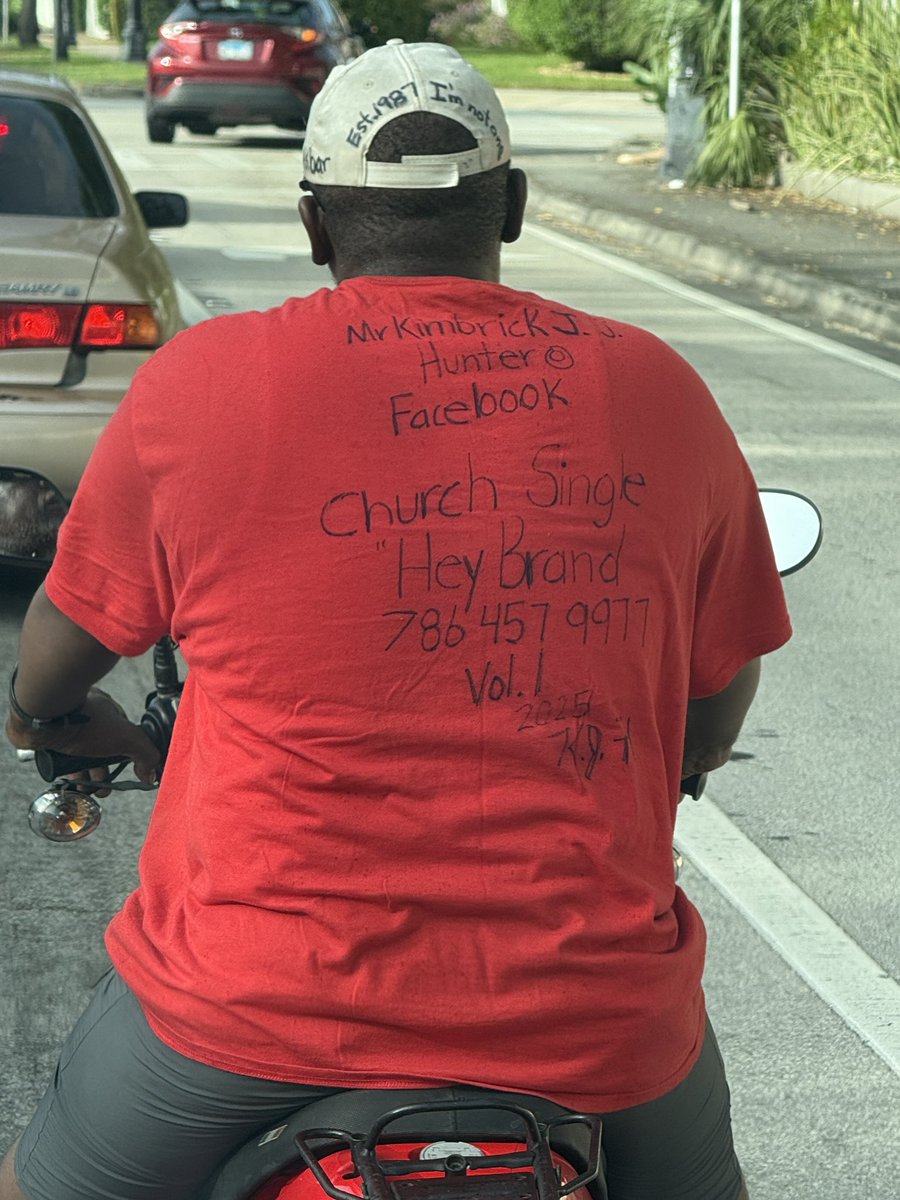 Est. 1987 I'm not one
bar
CAMRY
Mr Kimbrick J. J.
Hunter
Facebook
Church Single
"Hey Brand
786 457 9977
Vol. 1
2025
K.J.